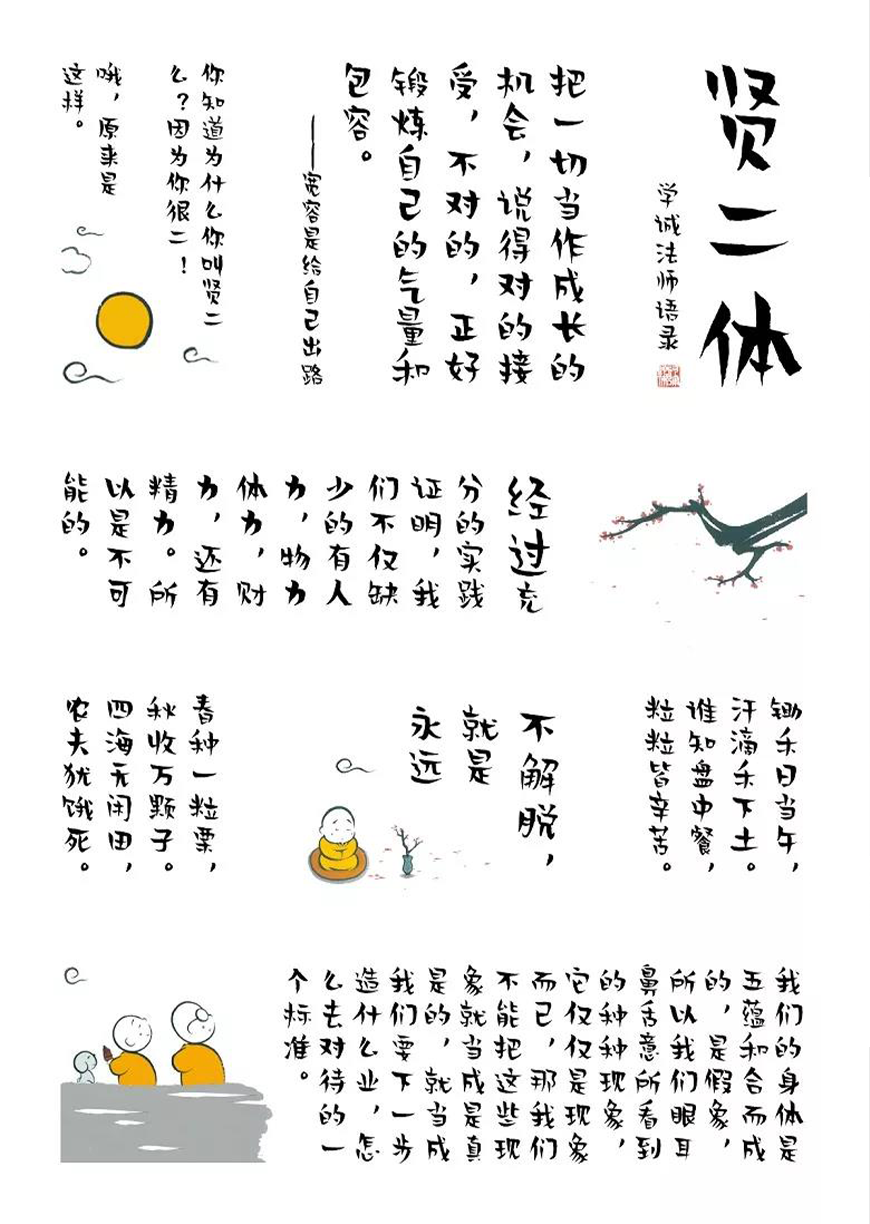 贤二体
学诚法师语录
把一切当作成长的
机会，说得对的接
受，不对的，正好
锻炼自己的气量和
包容。
——宽容是给自己出路
你知道为什么你叫贤二
么？因为你很二！
哦，原来是
这样。
经过充
分的实践
证明，我
们不仅缺
少的有人
力，物力
体力，财
力，还有
精力。所
以是不可
能的。
锄禾日当午，
汗滴禾下土。
谁知盘中餐，
粒粒皆辛苦。
不解脱，
就是
永远
春种一粒栗，
秋收万颗子。
四海无闲田，
农夫犹饿死。
我们的身体是
五蕴和合而成
的，是假象，
所以我们眼耳
鼻舌意所看到
的种种现象，
它仅仅是现象
而已，那我们
不能把这些现
象就当成是真
是的，就当成
我们要下一步
造什么业，怎
么去对待的一
个标准。